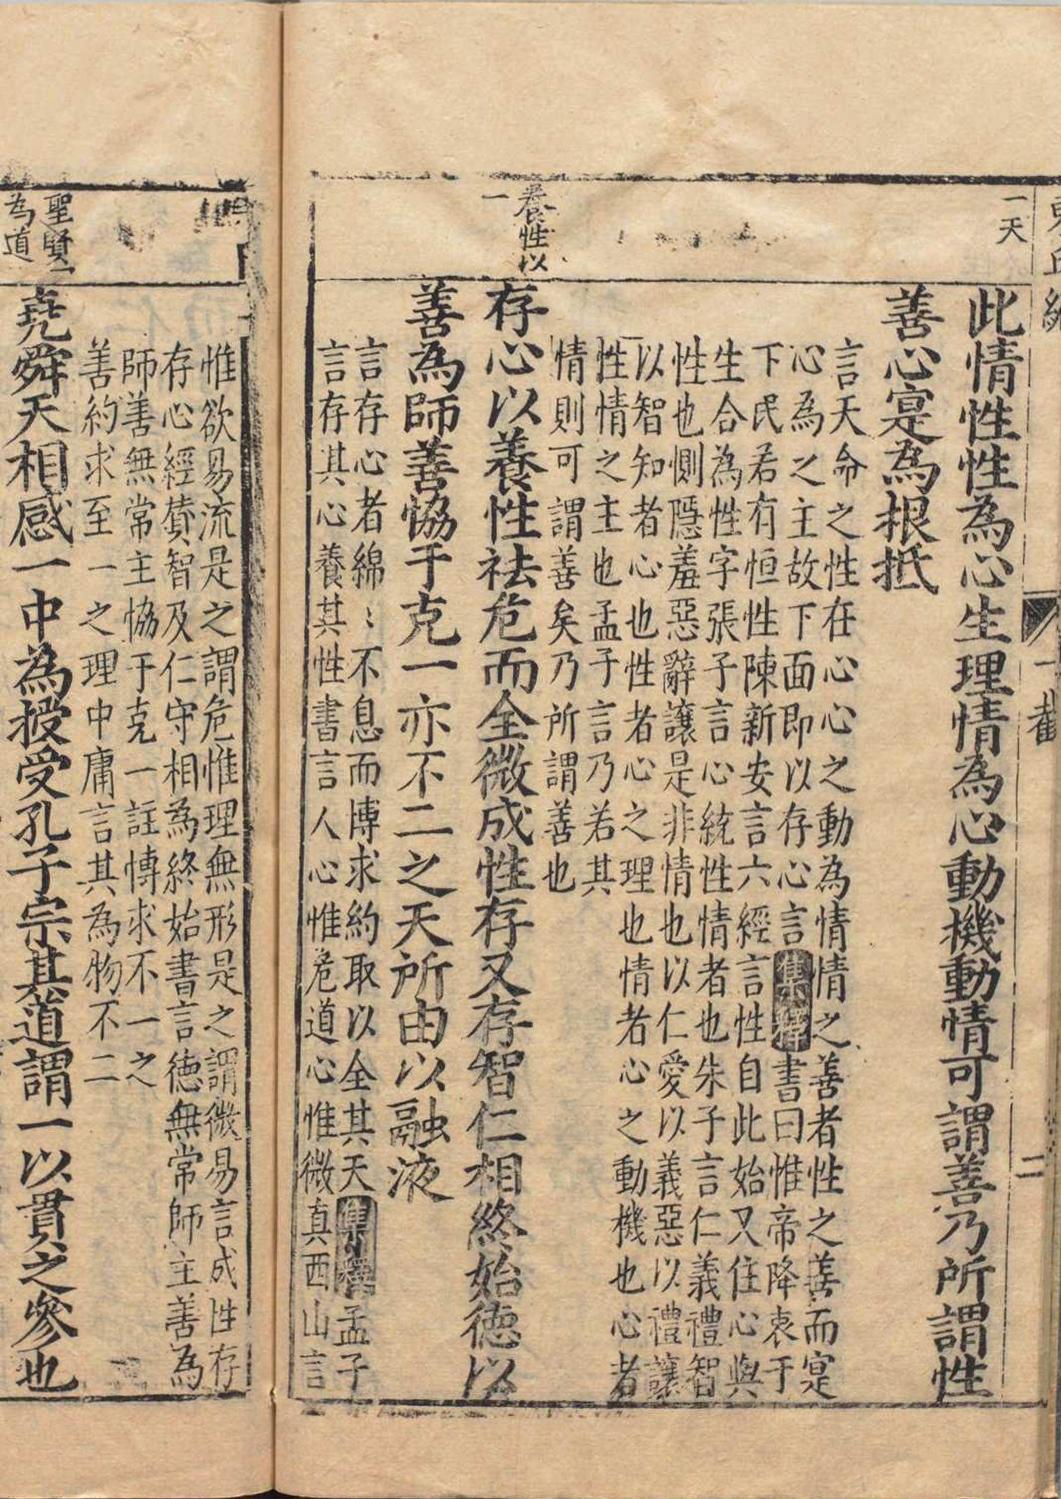 東丘
一截
二
一天
此情性性為心生理情為心動機動情可謂善乃所謂性
善心寔為根抵
言天命之性在心心之動為情情之善者性之善而寔
心為之主故下面即以存心言集釋書曰惟帝降衷于
下民若有恒性陳新安言六經言性自此始又住心與
生合為性字張子言心統性情者也朱子言仁義禮智
性也惻隱羞惡辭讓是非情也以仁愛以義惡以禮讓
以智知者心也性者心之理也情者心之動機也心者
性情之主也孟子言乃若其
情則可謂善矣乃所謂善也
養性以
一
存心以養性祛危而全微成性存又存智仁相終始德以
善為師善恊于克一亦不二之天所由以融液
言存心者綿〻不息而博求約取以全其天集釋孟子
言存其心養其性書言人心惟危道心惟微真西山言
惟欲易流是之謂危惟理無形是之謂微易言成性存
存心經賛智及仁守相為終始書言德無常師主善為
師善無常主恊于克一註博求不一之
善約求至一之理中庸言其為物不二
聖賢一
為道
堯舜天相感一中為授受孔子宗其道謂一以貫之參也